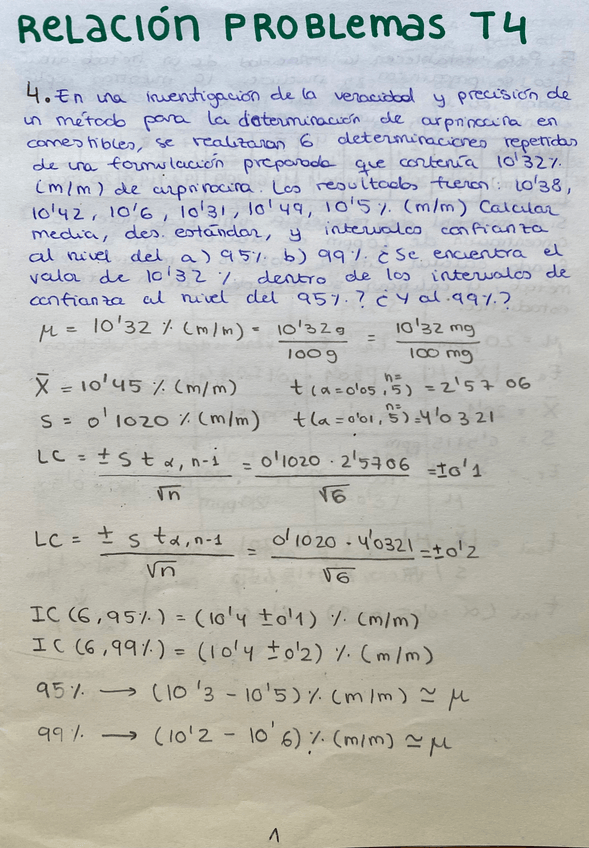 RELACIÓN PROBLEMAS T4
4. En una investigación de la veracidad y precisión de
un método para la determinación de arprinocina en
comestibles, se realizaron 6 determinaciones repetidas
de una formulación preparada que contenía 10'32%
(m/m) de arprinocina. Los resultados fueron: 10'38,
10'42, 10'6, 10'31, 10'49, 10'5% (m/m) Calcular
media, des. estándar, y intervalos confianza
al nivel del a) 95% b) 99%. ¿Se encuentra el
valor de 10'32 % dentro de los intervalos de
confianza al nivel del 95%? ¿Y al 99%?
μ = 10'32 % (m/m) = 10'32g / 100g = 10'32 mg / 100 mg
X̄ = 10'45 % (m/m) t (α=0'05, n=5) = 2'57 06
S = 0'1020 % (m/m) t(α=0'01, n=5)=4'0321
LC = ± s t α, n-1 / √n = 0'1020 · 2'5706 / √6 = ±0'1
LC = ± s tα, n-1 / √n = 0'1020 · 4'0321 / √6 = ±0'2
IC (6, 95%) = (10'4 ± 0'1) % (m/m)
IC (6, 99%) = (10'4 ± 0'2) % (m/m)
95% → (10'3 - 10'5) % (m/m) ≃ μ
99% → (10'2 - 10'6) % (m/m) ≃ μ
1